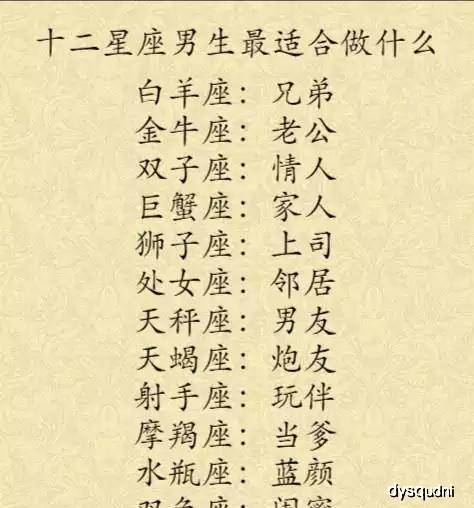 十二星座男生最适合做什么
白羊座：兄弟
金牛座：老公
双子座：情人
巨蟹座：家人
狮子座：上司
处女座：邻居
天秤座：男友
天蝎座：炮友
射手座：玩伴
摩羯座：当爹
水瓶座：蓝颜
双鱼座：闺蜜
dysqudni